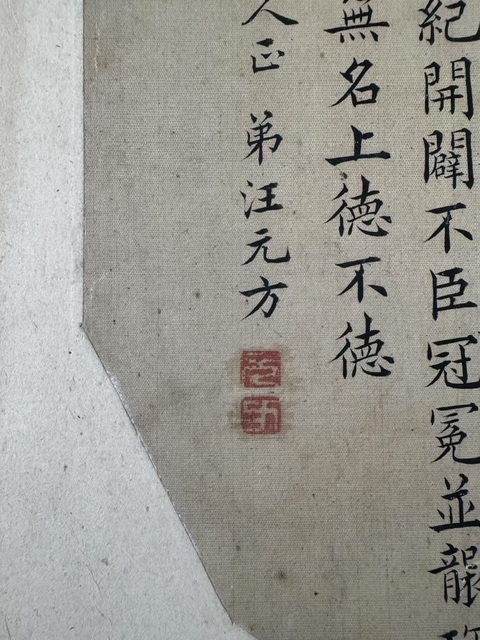 紀開闢不臣冠冕並襲
無名上德不德
人正 弟汪元方